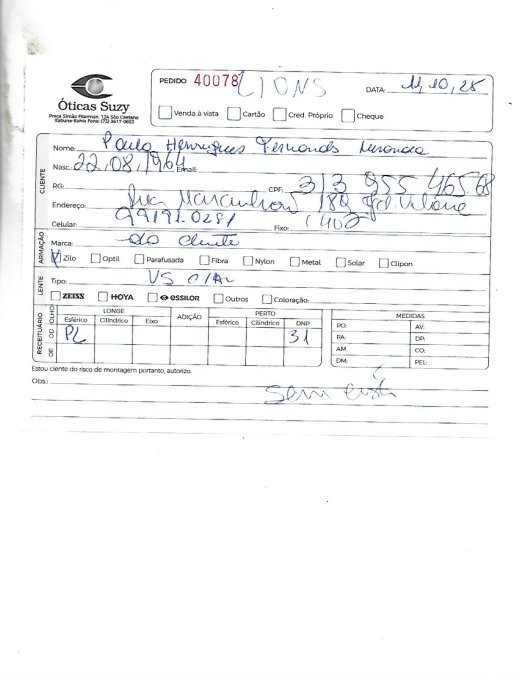 PEDIDO 40078 LIONS
DATA: 11,10,25
Óticas Suzy
Praça Simão Fiterman, 124 São Caetano
Itabuna-Bahia Fone: (73) 3617 0605
Venda à vista Cartão Cred. Próprio Cheque
CLIENTE
Nome: Paulo Henriques Fernands Miranda
Nasc: 22,08,1964 Email:
RG: CPF: 313 955 465 68
Endereço: Rua Maranhão 180
Celular: 99191.0281 Fixo: 1402
ARMAÇÃO
Marca: do cliente
Zilo Optil Parafusada Fibra Nylon Metal Solar Clipon
LENTE
Tipo: VS C/AR
ZEISS HOYA essilor Outros Coloração:
RECEITUÁRIO
OLHO LONGE ADIÇÃO PERTO MEDIDAS
Esférico Cilíndrico Eixo Esférico Cilíndrico DNP
OD PL 31
OE
PO: AV:
PA: DP:
AM CO:
DM: PEL:
Estou ciente do risco de montagem portanto, autorizo.
Obs.:
Sem custo